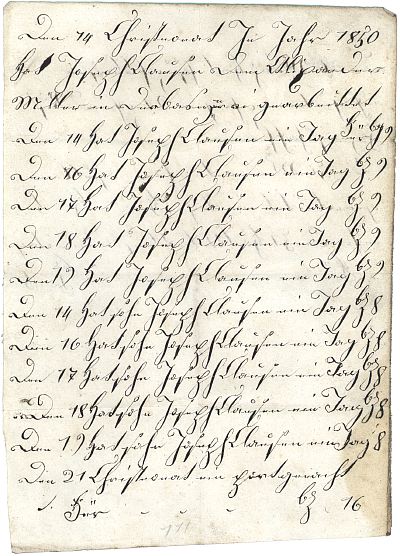 Den 14 Christmonat Im Jahr 1850
hat Joseph Clausen dem Alexander
Miller in gearbeittet
Den 14 Hat Joseph Clausen ein Tag für bz 9
Den 16 Hat Joseph Clausen ein Tag bz 9
Den 17 Hat Joseph Clausen ein Tag bz 9
Den 18 Hat Joseph Clausen ein Tag bz 9
Den 19 Hat Joseph Clausen ein Tag bz 9
Den 14 Hat sohn Joseph Clausen ein Tag bz 8
Den 16 Hat sohn Joseph Clausen ein Tag bz 8
Den 17 Hat sohn Joseph Clausen ein Tag bz 8
Den 18 Hat sohn Joseph Clausen ein Tag bz 8
Den 19 Hat sohn Joseph Clausen ein Tag 8
Den 21 Christmonat ein gemacht
Für bz 16
111